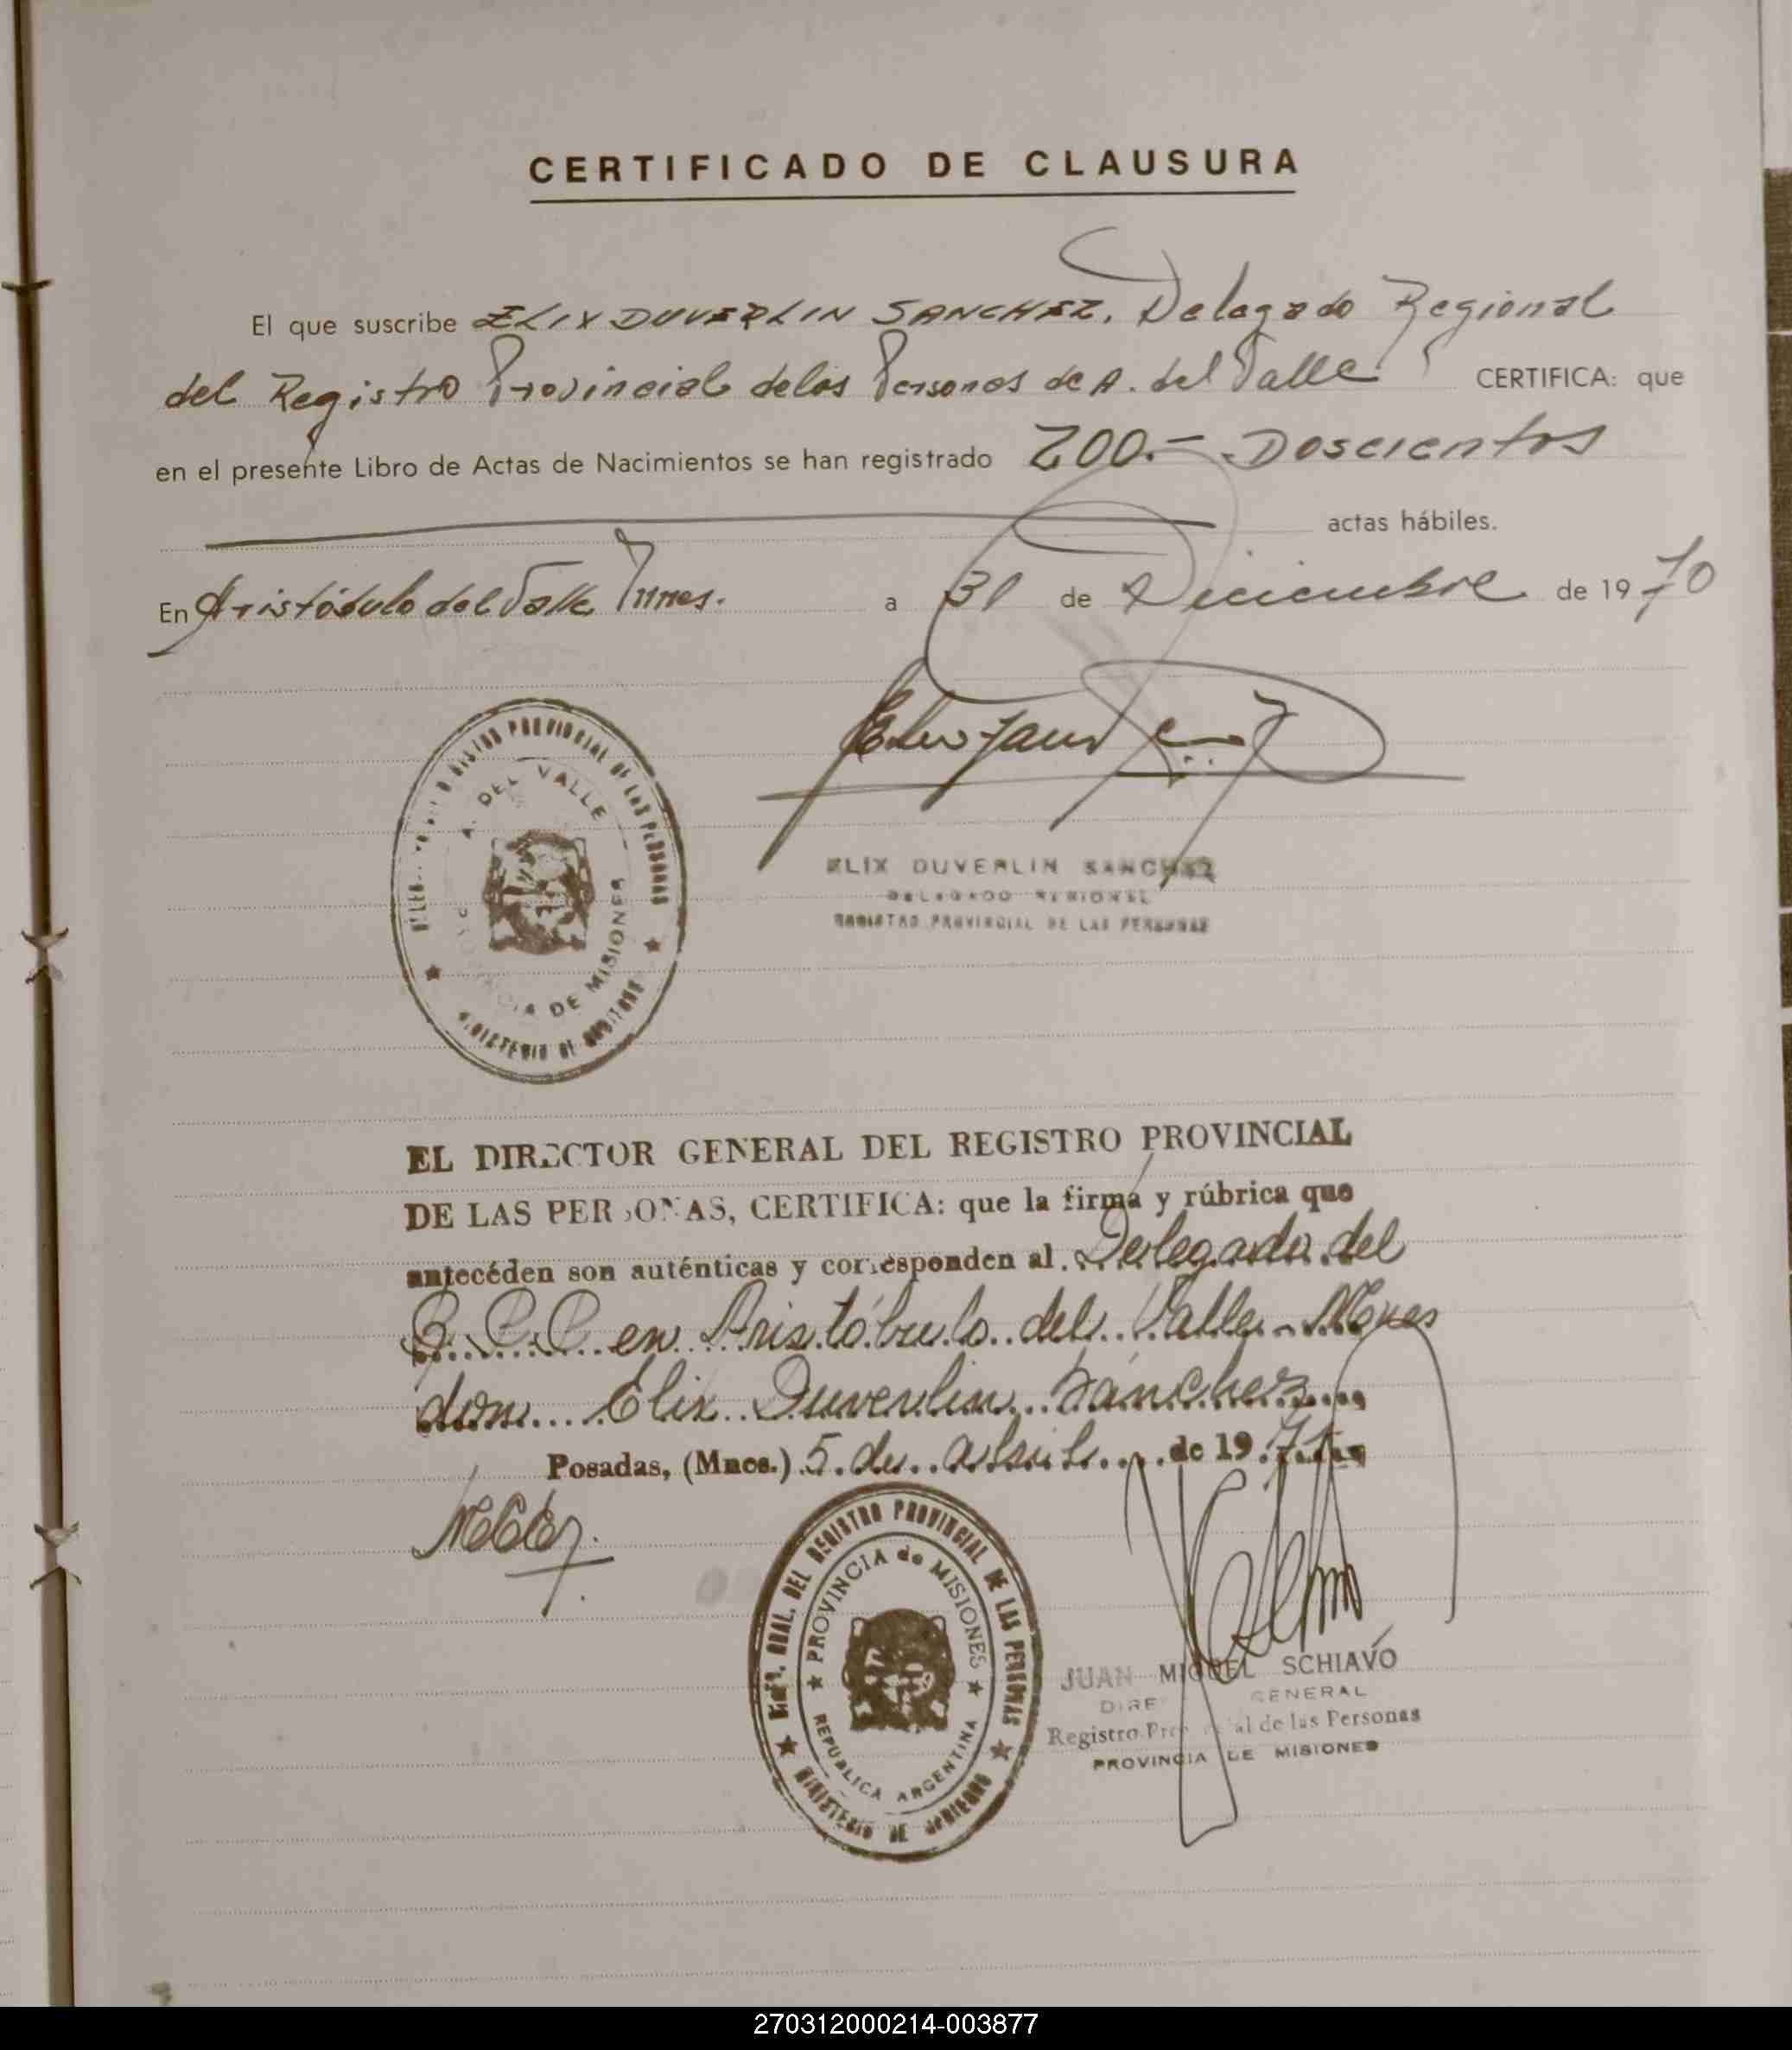 CERTIFICADO DE CLAUSURA
El que suscribe ELIX DUVERLIN SANCHEZ, Delegado Regional
del Registro Provincial de las Personas de A. del Valle CERTIFICA: que
en el presente Libro de Actas de Nacimientos se han registrado 200.- Doscientos
actas hábiles.
En Aristóbulo del Valle Mnes. a 31 de Diciembre de 1970
REGISTRO PROVINCIAL DE LAS PERSONAS
A. DEL VALLE
PROVINCIA DE MISIONES
MINISTERIO DE GOBIERNO
ELIX DUVERLIN SANCHEZ
DELEGADO REGIONAL
REGISTRO PROVINCIAL DE LAS PERSONAS
EL DIRECTOR GENERAL DEL REGISTRO PROVINCIAL
DE LAS PERSONAS, CERTIFICA: que la firma y rúbrica que
antecéden son auténticas y corresponden al Delegado del
R.P.P. en Aristóbulo del Valle - Mnes
don Elix Duverlin Sánchez
Posadas, (Mnes.) 5 de abril de 1971
GRAL. DEL REGISTRO PROVINCIAL DE LAS PERSONAS
PROVINCIA de MISIONES
REPUBLICA ARGENTINA
MINISTERIO DE GOBIERNO
JUAN MIGUEL SCHIAVO
DIRECTOR GENERAL
Registro Provincial de las Personas
PROVINCIA DE MISIONES
270312000214-003877